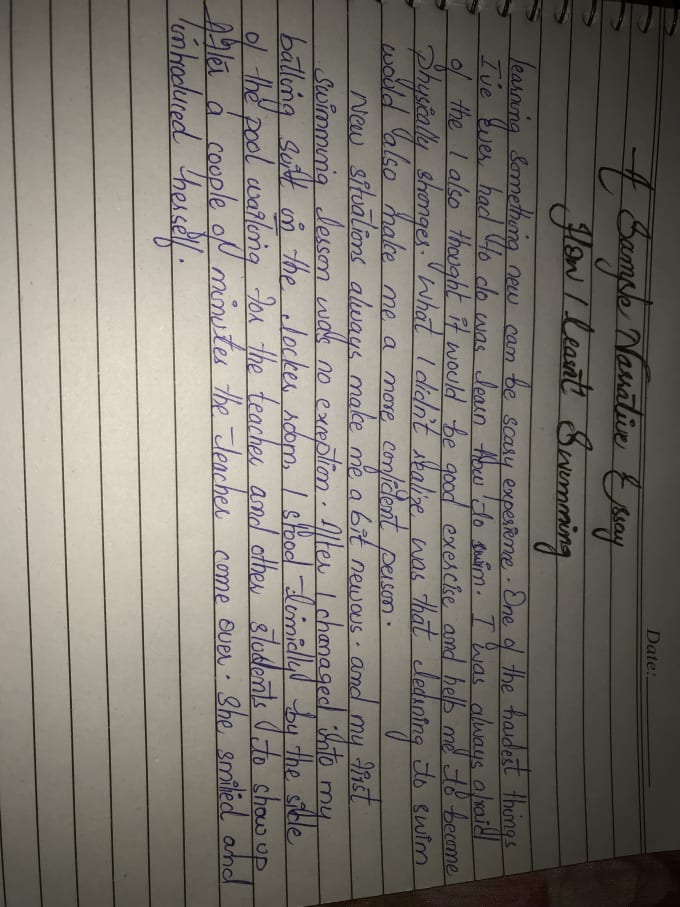 Date:
A Sample Narrative Essay
How I Leant Swimming
learning something new can be scary experieme. One of the hardest things
I've ever had to do was learn how to swim. I was always afraid
of the I also thought it would be good exercise and help me to become
physically stronger. What I didn't realize was that learning to swim
would also make me a more confident person.
New situations always make me a bit nervous. and my first
swimming lesson was no exception. After I chanaged into my
batling suit in the locker room, I stood timidly by the side
of the pool waiting for the teacher and other students to show up
After a couple of minutes the teacher come over. She smiled and
imhodured herself.